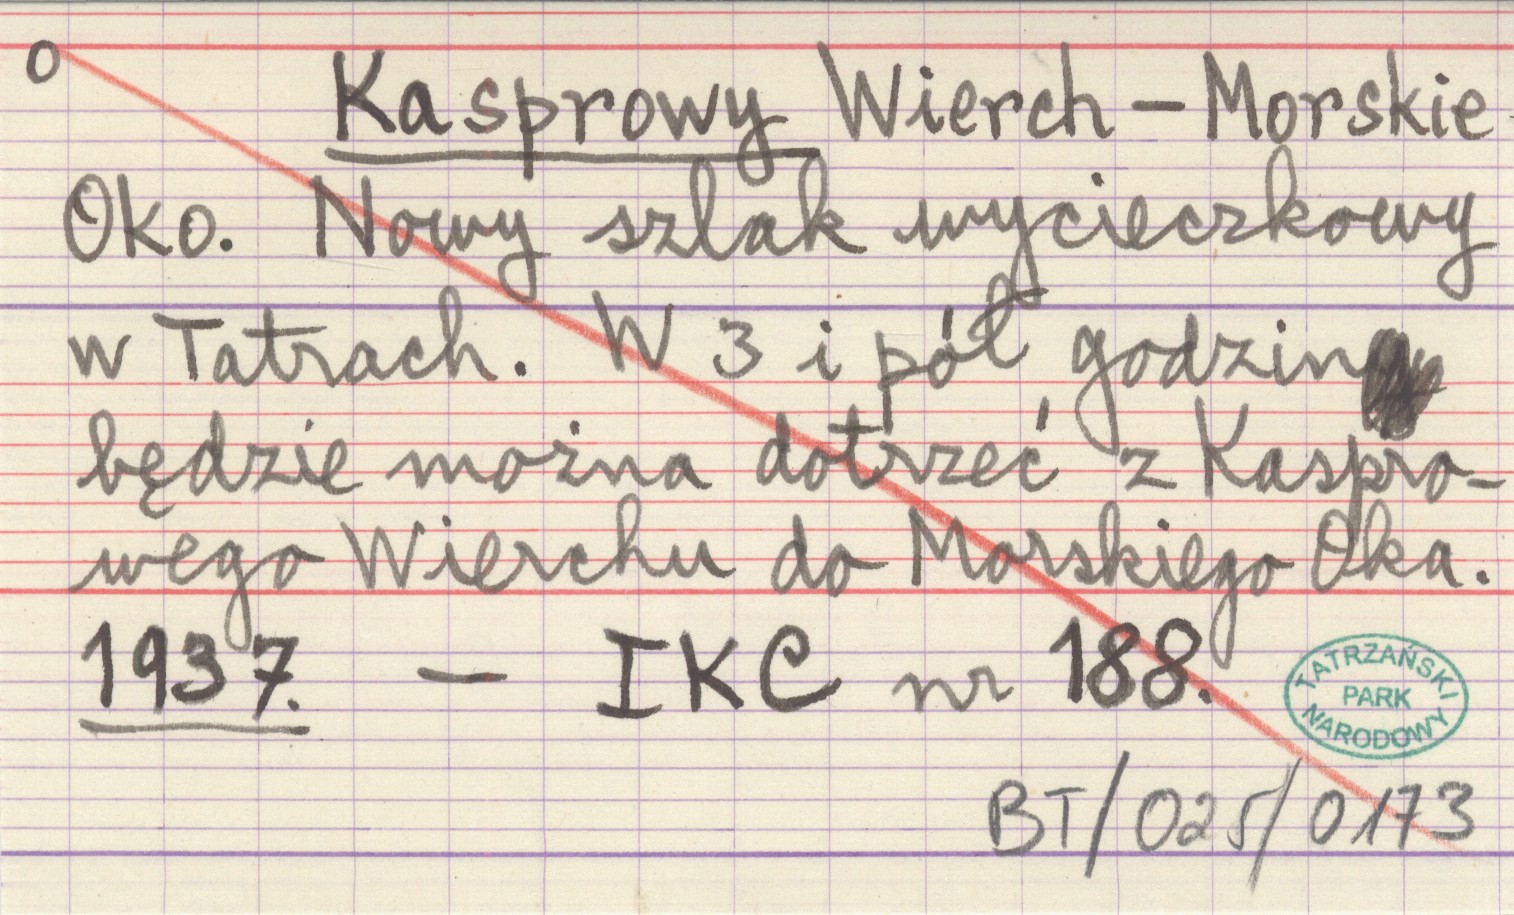 o
Kasprowy Wierch – Morskie
Oko. Nowy szlak wycieczkowy
w Tatrach. W 3 i pół godzin
będzie można dotrzeć z Kaspro-
wego Wierchu do Morskiego Oka.
1937. – IKC nr 188.
TATRZAŃSKI
PARK
NARODOWY
BT/025/0173